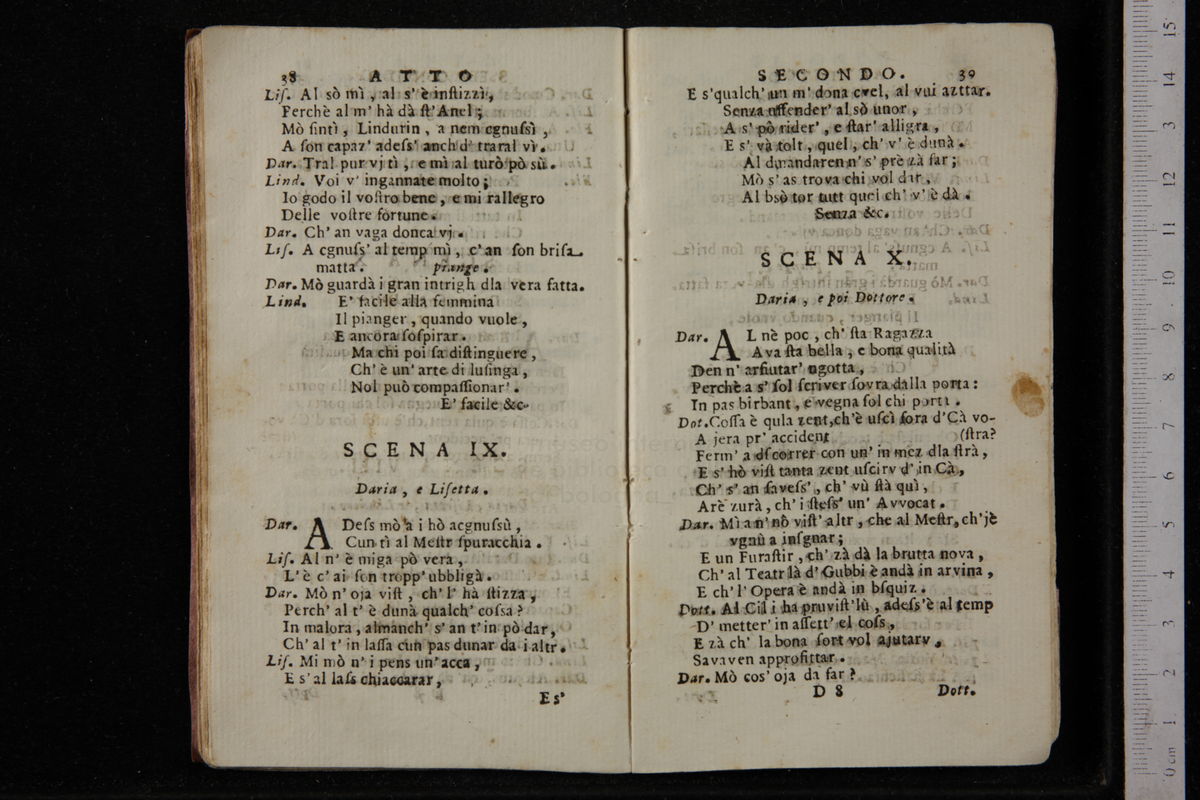 38 ATTO
Liſ. Al sò mì, al s' è inſtizzì,
Perchè al m' hà dà ſt' Anel;
Mò ſintì, Lindurin, a nem cgnuſsì,
A ſon capaz' adeſs' anch d' traral vì.
Dar. Tral pur vj tì, e mì al turò pò sù.
Lind. Voi v' ingannate molto;
Io godo il voſtro bene, e mi rallegro
Delle voſtre fortune.
Dar. Ch' an vaga donca vj.
Liſ. A cgnuſs' al temp mì, c' an ſon briſa
matta. piange.
Dar. Mò guardà i gran intrigh dla vera fatta.
Lind. E' facile alla femmina
Il pianger, quando vuole,
E ancora ſoſpirar.
Ma chi poi ſa diſtinguere,
Ch' è un' arte di luſinga,
Nol può compaſſionar'.
E' facile &c.
SCENA IX.
Daria, e Liſetta.
Dar. ADeſs mò a i hò acgnuſsù,
Cun tì al Meſtr ſpuracchia.
Liſ. Al n' è miga pò vera,
L' è c' ai ſon tropp' ubbligà.
Dar. Mò n' oja viſt, ch' l' hà ſtizza,
Perch' al t' è dunà qualch' coſsa?
In malora, almanch' s' an t' in pò dar,
Ch' al t' in laſſa cun pas dunar da i altr.
Liſ. Mi mò n' i pens un' acca,
E s' al laſs chiaccarar,
Es'
SECONDO. 39
E s' qualch' un m' dona cvel, al vui azttar.
Senza offender' al sò unor,
A s' pò rider', e ſtar' alligra,
E s' và tolt, quel, ch' v' è dunà.
Al dmandaren n' s' prè zà far;
Mò s' as trova chi vol dar,
Al bsò tor tutt quei ch' v' è dà.
Senza &c.
SCENA X.
Daria, e poi Dottore.
Dar. AL nè poc, ch' ſta Ragazza
Ava ſta bella, e bona qualità
Den n' arſiutar' ngotta,
Perchè a s' ſol ſcriver ſovra dalla porta:
In pas birbant, e vegna ſol chi porta.
Dot. Coſſa è qula zent, ch'è uſcì fora d'Cà vo-
A jera pr' accident (ſtra?
Ferm' a dſcorrer con un' in mez dla ſtrà,
E s' hò viſt tanta zent uſcirv d' in Cà,
Ch' s' an ſaveſs', ch' vù ſtà quì,
Arè zurà, ch' i ſteſs' un' Avvocat.
Dar. Mì a n' nò viſt' altr, che al Meſtr, ch'jè
vgnù a inſgnar;
E un Furaſtir, ch' zà dà la brutta nova,
Ch' al Teatr là d' Gubbi è andà in arvina,
E ch' l' Opera è andà in bſquiz.
Dott. Al Cil i ha pruviſt' lù, adeſs'è al temp
D' metter' in aſſett' el coſs,
E zà ch' la bona ſort vol ajutarv,
Savaven approfittar.
Dar. Mò cos' oja da far?
D 8 Dott.